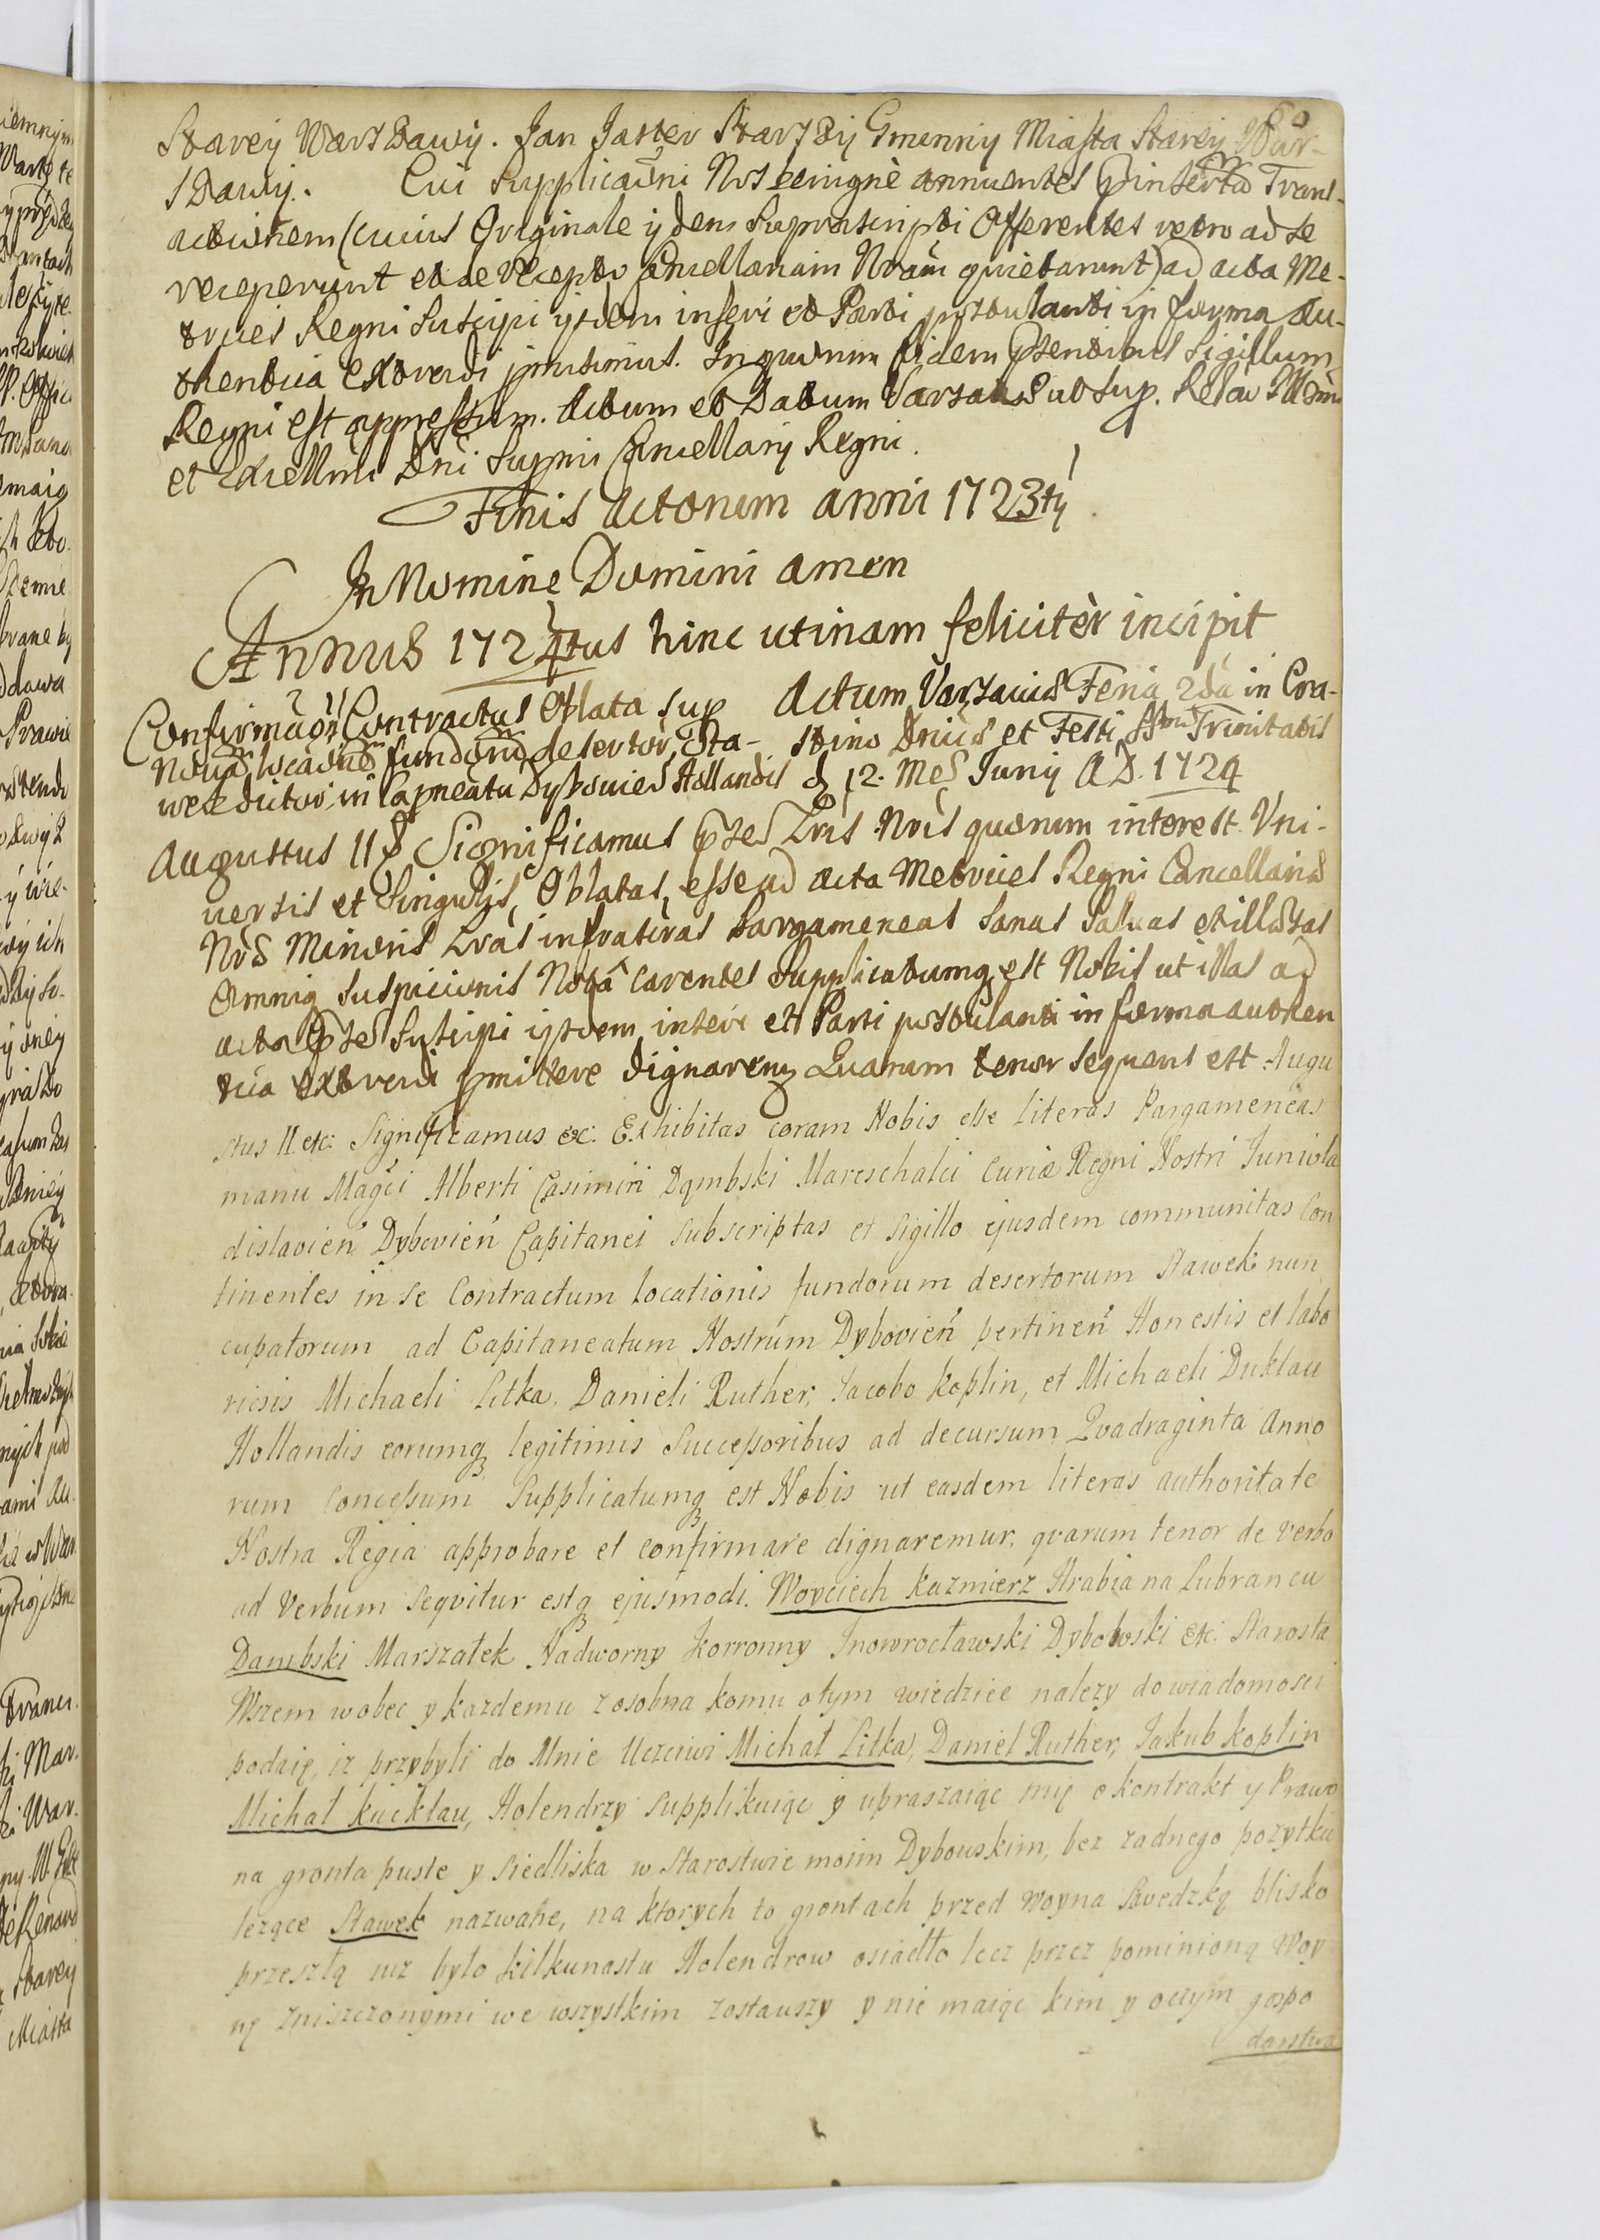 Starey Warszawy. Jan Jaster Starszy Gminny Miasta Starey War-
szawy. Cui Supplicaōni Nos benignè annuentes Transactionem
actionem (cuius Originale ijdem Suprascripti Offerentes retro ad se
receperunt et de recepto Cancellariam Nrām quietarunt) ad acta Me-
trices Regni Suscipi ijsdem inseri et Parti postulanti in forma au-
thentica extradi permisimus. In quorum fidem Sigillum
Regni est appressum. Actum et Datum Varsaviæ Sub Sup. Relāe
et Excellmi Dni Supmi Cancellarij Regni.
Finis Actorum anni 1723tij
In Nomine Domini amen
Annus 1724tus hinc utinam felicitèr incipit
Contractus Oblata sup Actum Varsaviæ Feria 2da in Cra-
fundorū desertor, Sta- stino Dnicæ et Festi Ssmæ Trinitatis
wek dictor, in Capneatu Dyboviens Hollandis d 12. Mes Junij AD. 1724
Augustus II Significamus Lrās Nrīs quorum interest. Uni-
versis et Singulis, Oblatas, esse ad acta Metrices Regni Cancellariæ
Nræ Minoris Lrās infrascras Pargameneas Sanas Salvas et illæsas
Omniq suspicionis Notâ carentes Supplicatumq est Nobis ut illas ad
acta Suscipi ijsdem inseri et Parti postulanti in forma authen
tica extradi pmittere dignaremur Quarum tenor sequens est Augu
stus II etc: Significamus &c: Exhibitas coram Nobis esse literas Pargameneas
manu Magci Alberti Casimiri Dąmbski Mareschalci Curiæ Regni Nostri Junivla
dislavien̄ Dybovien̄ Capitanei subscriptas et Sigillo ejusdem communitas Con
tinentes in se Contractum locationis fundorum desertorum Stawek nun
cupatorum ad Capitaneatum Nostrum Dybovien̄ pertinen̄ Honestis et labo
riosis Michaeli Litka, Danieli Ruther, Jacobo Koplin, et Michaeli Duklau
Hollandis eorumq legitimis Successoribus ad decursum Quadraginta Anno
rum concessum Supplicatumq est Nobis ut easdem literas authoritate
Nostra Regia approbare et confirmare dignaremur, quarum tenor de verbo
ad Verbum Seqvitur estq ejusmodi. Woyciech Kazmierz Hrabia na Lubrancu
Dambski Marszałek Nadworny Korronny Inowrocławski Dybowski etc: Starosta
Wszem wobec y kazdemu zosobna komu otym wiedziec nalezy dowiadomosci
podaię, iz przybyli do Mnie Uczciwi Michał Litka, Daniel Ruther, Jakub Koplin
Michał Kucklau, Holendrzy supplikuiąc y upraszaiąc mię o kontrakt y Prawo
na gronta puste y siedliska w Starostwie moim Dybowskim, bez zadnego pozytku
lezące Stawek nazwane, na ktorych to grontach przed Woyna Svedzką blisko
przeszłą iuz było kilkunastu Holendrow osiadło lecz przez pominioną Woy
nę zniszczonymi we wszystkim zostawszy y nie maiąc kim y oczym gospo
darstwa